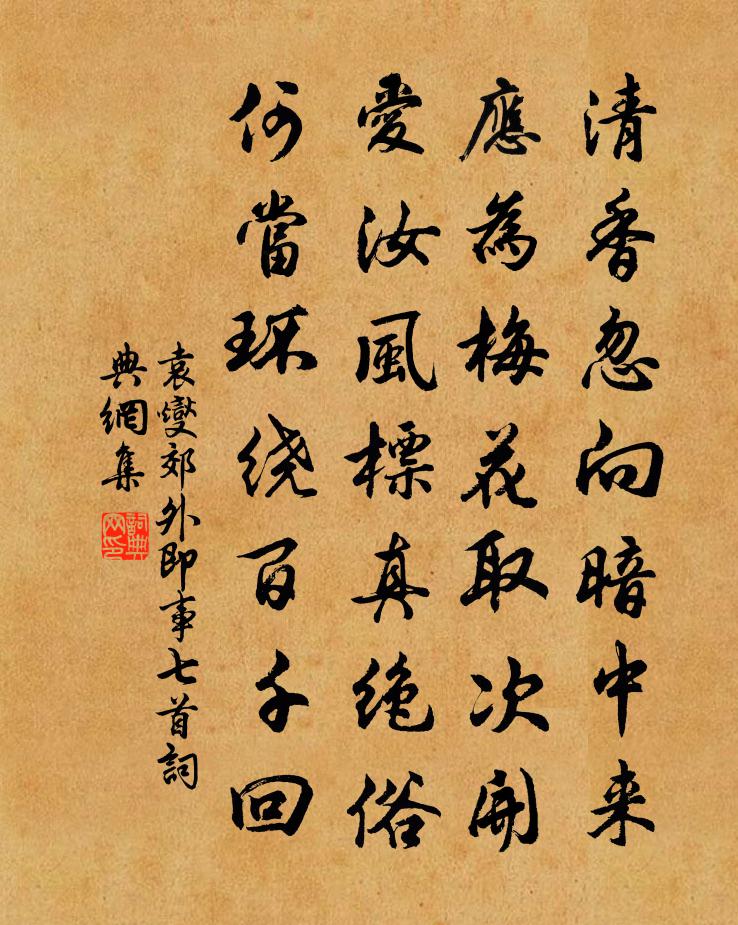 清香忽向暗中来
應為梅花取次開
愛汝風標真絶俗
何當环绕百千回
袁燮郊外即事七首詞
典網集
詞典
网印